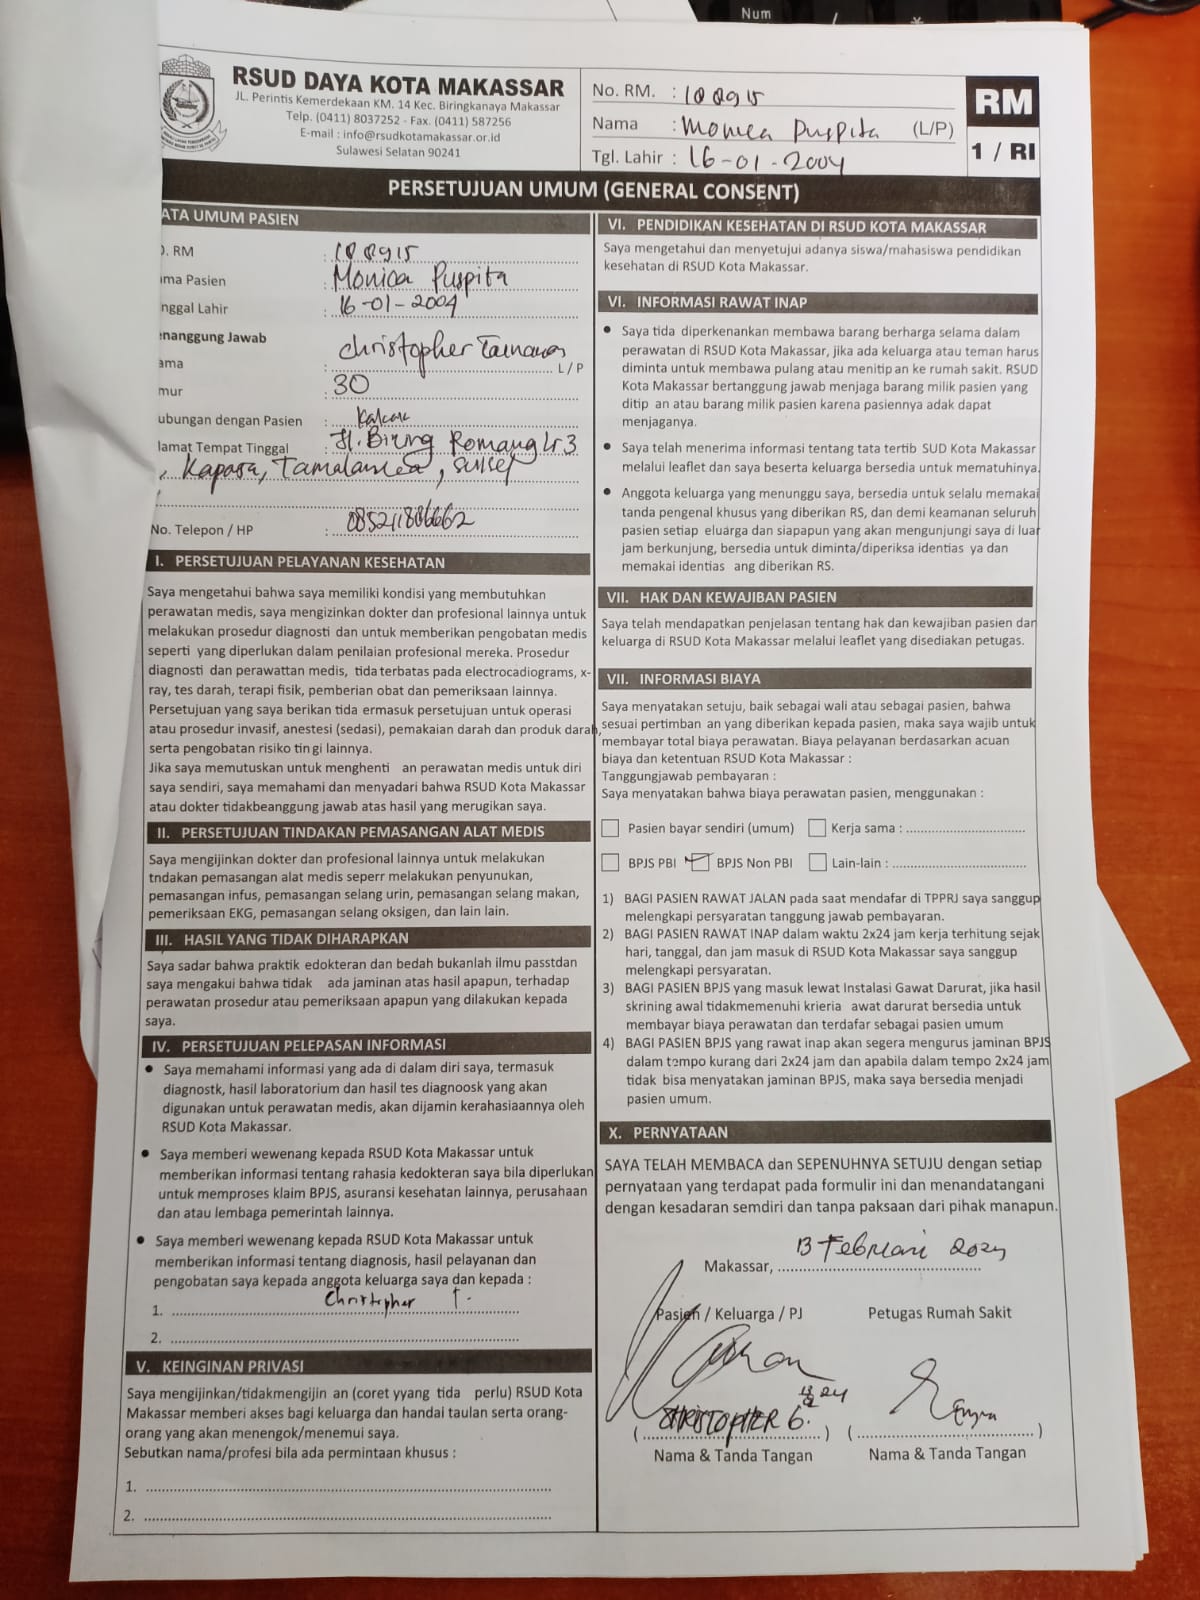 Num
RSUD DAYA KOTA MAKASSAR
JL. Perintis Kemerdekaan KM. 14 Kec. Biringkanaya Makassar
Telp. (0411) 8037252 - Fax. (0411) 587256
E-mail : info@rsudkotamakassar.or.id
Sulawesi Selatan 90241
No. RM. : 188915
Nama : Monica Puspita (L/P)
Tgl. Lahir : 16-01-2004
RM
1 / RI
PERSETUJUAN UMUM (GENERAL CONSENT)
ATA UMUM PASIEN
. RM : 188915
ma Pasien : Monica Puspita
nggal Lahir : 16-01-2004
nanggung Jawab
ama : Christopher L/P
mur : 30
ubungan dengan Pasien :
lamat Tempat Tinggal : Jl. Biring Romang Lr 3
Kapasa, Tamalanrea, Sulsel
No. Telepon / HP :
I. PERSETUJUAN PELAYANAN KESEHATAN
Saya mengetahui bahwa saya memiliki kondisi yang membutuhkan
perawatan medis, saya mengizinkan dokter dan profesional lainnya untuk
melakukan prosedur diagnosti dan untuk memberikan pengobatan medis
seperti yang diperlukan dalam penilaian profesional mereka. Prosedur
diagnosti dan perawattan medis, tida terbatas pada electrocadiograms, x-
ray, tes darah, terapi fisik, pemberian obat dan pemeriksaan lainnya.
Persetujuan yang saya berikan tida ermasuk persetujuan untuk operasi
atau prosedur invasif, anestesi (sedasi), pemakaian darah dan produk darah,
serta pengobatan risiko tin gi lainnya.
Jika saya memutuskan untuk menghenti an perawatan medis untuk diri
saya sendiri, saya memahami dan menyadari bahwa RSUD Kota Makassar
atau dokter tidakbeanggung jawab atas hasil yang merugikan saya.
II. PERSETUJUAN TINDAKAN PEMASANGAN ALAT MEDIS
Saya mengijinkan dokter dan profesional lainnya untuk melakukan
tndakan pemasangan alat medis seperr melakukan penyunukan,
pemasangan infus, pemasangan selang urin, pemasangan selang makan,
pemeriksaan EKG, pemasangan selang oksigen, dan lain lain.
III. HASIL YANG TIDAK DIHARAPKAN
Saya sadar bahwa praktik edokteran dan bedah bukanlah ilmu passtdan
saya mengakui bahwa tidak ada jaminan atas hasil apapun, terhadap
perawatan prosedur atau pemeriksaan apapun yang dilakukan kepada
saya.
IV. PERSETUJUAN PELEPASAN INFORMASI
• Saya memahami informasi yang ada di dalam diri saya, termasuk
diagnostk, hasil laboratorium dan hasil tes diagnoosk yang akan
digunakan untuk perawatan medis, akan dijamin kerahasiaannya oleh
RSUD Kota Makassar.
• Saya memberi wewenang kepada RSUD Kota Makassar untuk
memberikan informasi tentang rahasia kedokteran saya bila diperlukan
untuk memproses klaim BPJS, asuransi kesehatan lainnya, perusahaan
dan atau lembaga pemerintah lainnya.
• Saya memberi wewenang kepada RSUD Kota Makassar untuk
memberikan informasi tentang diagnosis, hasil pelayanan dan
pengobatan saya kepada anggota keluarga saya dan kepada :
1. Christopher T.
2.
V. KEINGINAN PRIVASI
Saya mengijinkan/tidakmengijin an (coret yyang tida perlu) RSUD Kota
Makassar memberi akses bagi keluarga dan handai taulan serta orang-
orang yang akan menengok/menemui saya.
Sebutkan nama/profesi bila ada permintaan khusus :
1.
2.
VI. PENDIDIKAN KESEHATAN DI RSUD KOTA MAKASSAR
Saya mengetahui dan menyetujui adanya siswa/mahasiswa pendidikan
kesehatan di RSUD Kota Makassar.
VI. INFORMASI RAWAT INAP
• Saya tida diperkenankan membawa barang berharga selama dalam
perawatan di RSUD Kota Makassar, jika ada keluarga atau teman harus
diminta untuk membawa pulang atau menitip an ke rumah sakit. RSUD
Kota Makassar bertanggung jawab menjaga barang milik pasien yang
ditip an atau barang milik pasien karena pasiennya adak dapat
menjaganya.
• Saya telah menerima informasi tentang tata tertib SUD Kota Makassar
melalui leaflet dan saya beserta keluarga bersedia untuk mematuhinya.
• Anggota keluarga yang menunggu saya, bersedia untuk selalu memakai
tanda pengenal khusus yang diberikan RS, dan demi keamanan seluruh
pasien setiap eluarga dan siapapun yang akan mengunjungi saya di luar
jam berkunjung, bersedia untuk diminta/diperiksa identias ya dan
memakai identias ang diberikan RS.
VII. HAK DAN KEWAJIBAN PASIEN
Saya telah mendapatkan penjelasan tentang hak dan kewajiban pasien dan
keluarga di RSUD Kota Makassar melalui leaflet yang disediakan petugas.
VII. INFORMASI BIAYA
Saya menyatakan setuju, baik sebagai wali atau sebagai pasien, bahwa
sesuai pertimban an yang diberikan kepada pasien, maka saya wajib untuk
membayar total biaya perawatan. Biaya pelayanan berdasarkan acuan
biaya dan ketentuan RSUD Kota Makassar :
Tanggungjawab pembayaran :
Saya menyatakan bahwa biaya perawatan pasien, menggunakan :
Pasien bayar sendiri (umum) Kerja sama :
BPJS PBI BPJS Non PBI Lain-lain :
1) BAGI PASIEN RAWAT JALAN pada saat mendafar di TPPRJ saya sanggup
melengkapi persyaratan tanggung jawab pembayaran.
2) BAGI PASIEN RAWAT INAP dalam waktu 2x24 jam kerja terhitung sejak
hari, tanggal, dan jam masuk di RSUD Kota Makassar saya sanggup
melengkapi persyaratan.
3) BAGI PASIEN BPJS yang masuk lewat Instalasi Gawat Darurat, jika hasil
skrining awal tidakmemenuhi krieria awat darurat bersedia untuk
membayar biaya perawatan dan terdafar sebagai pasien umum
4) BAGI PASIEN BPJS yang rawat inap akan segera mengurus jaminan BPJS
dalam tempo kurang dari 2x24 jam dan apabila dalam tempo 2x24 jam
tidak bisa menyatakan jaminan BPJS, maka saya bersedia menjadi
pasien umum.
X. PERNYATAAN
SAYA TELAH MEMBACA dan SEPENUHNYA SETUJU dengan setiap
pernyataan yang terdapat pada formulir ini dan menandatangani
dengan kesadaran semdiri dan tanpa paksaan dari pihak manapun.
Makassar, 13 Februari 2024
Pasien / Keluarga / PJ Petugas Rumah Sakit
CHRISTOPHER G.
Nama & Tanda Tangan Nama & Tanda Tangan